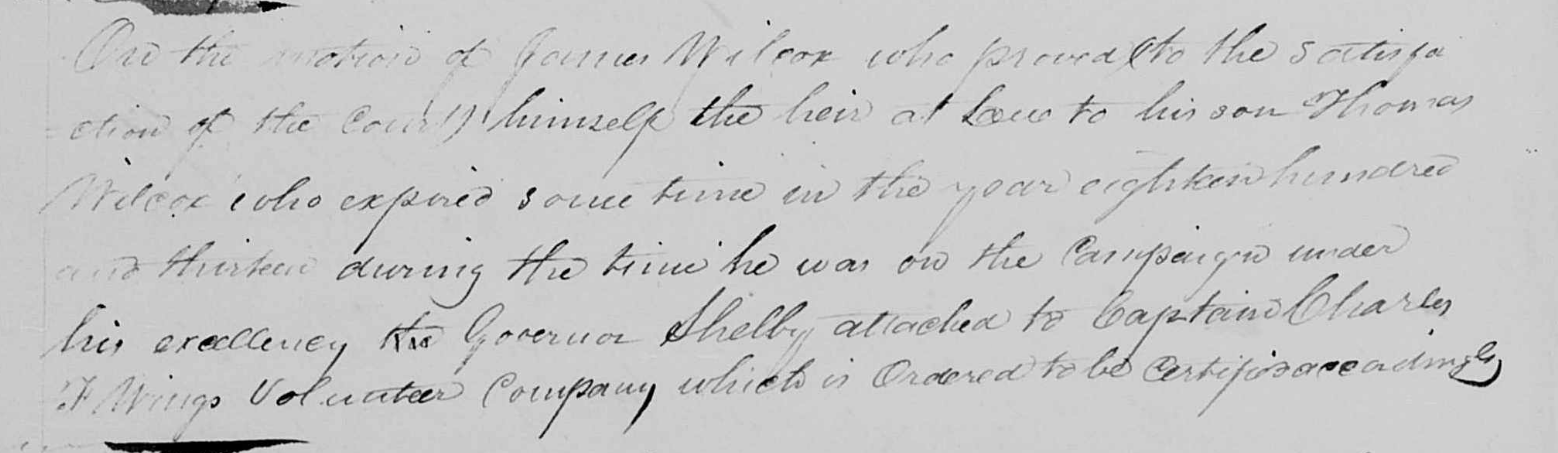 On the motion of James Wilcox who proved to the satisfa
ction of the Court himself the heir at Law to his son Thomas
Wilcox who expired some time in the year eighteen hundred
and thirteen during the time he was on the Campaign under
his excellency the Governor Shelby attached to Captain Charles
F Wings Volunteer Company which is Ordered to be Certified accordingly